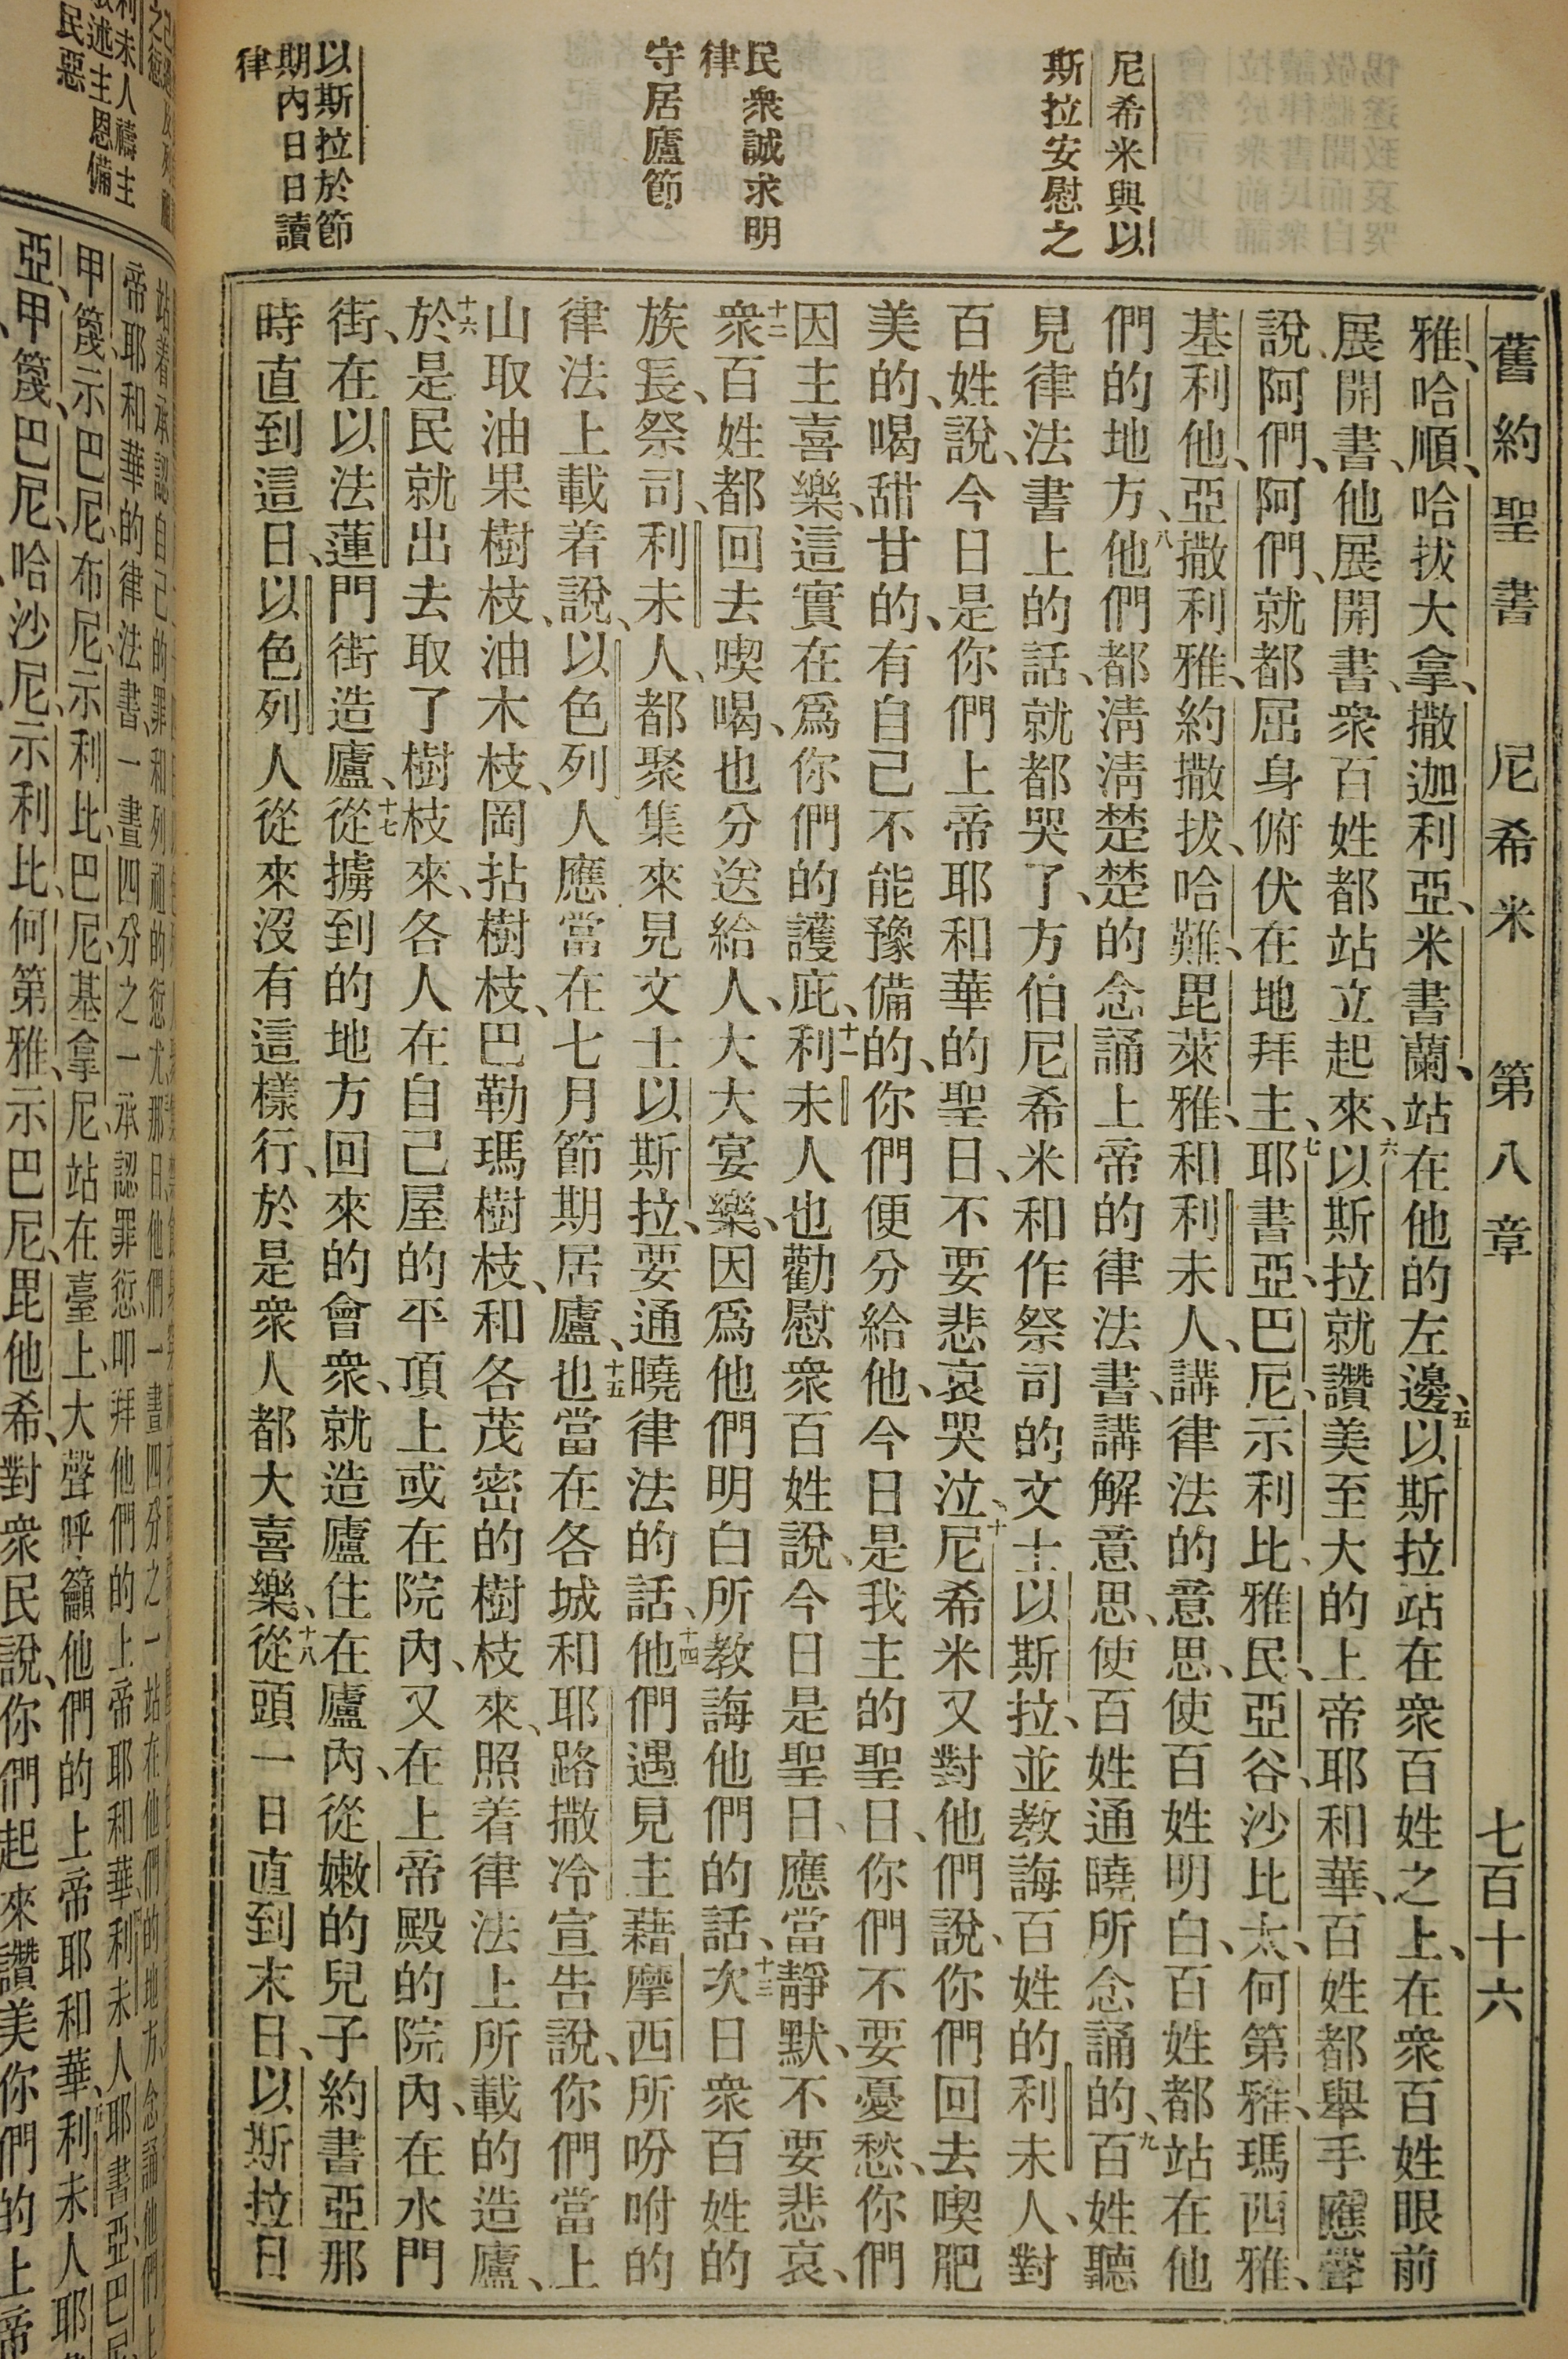 舊約聖書 尼希米 第八章 七百十六
尼希米與以
斯拉安慰之
民衆誠求明
律
守居廬節
以斯拉於節
期內日日讀
律
雅、哈順、哈拔大拿、撒迦利亞、米書蘭、站在他的左邊、五以斯拉站在衆百姓之上、在衆百姓眼前
展開書、他展開書、衆百姓都站立起來、六以斯拉就讚美至大的上帝耶和華、百姓都舉手應聲
說、阿們、阿們、就都屈身俯伏在地拜主、七耶書亞、巴尼、示利比、雅民、亞谷、沙比太、何第雅、瑪西雅、
基利他、亞撒利雅、約撒拔、哈難、毘萊雅、和利未人、講律法的意思、使百姓明白、百姓都站在他
們的地方、八他們都淸淸楚楚的念誦上帝的律法書、講解意思、使百姓通曉所念誦的、九百姓聽
見律法書上的話、就都哭了、方伯尼希米和作祭司的文士以斯拉、並教誨百姓的利未人、對
百姓說、今日是你們上帝耶和華的聖日、不要悲哀哭泣、十尼希米又對他們說、你們回去喫肥
美的、喝甜甘的、有自己不能豫備的、你們便分給他、今日是我主的聖日、你們不要憂愁、你們
因主喜樂、這實在爲你們的護庇、十一利未人也勸慰衆百姓說、今日是聖日、應當靜默、不要悲哀、
十二衆百姓都回去喫喝、也分送給人、大大宴樂、因爲他們明白所教誨他們的話、十三次日衆百姓的
族長、祭司、利未人、都聚集來見文士以斯拉、要通曉律法的話、十四他們遇見主藉摩西所吩咐的
律法上載着說、以色列人應當在七月節期居廬、十五也當在各城和耶路撒冷宣告說、你們當上
山取油果樹枝、油木枝、岡拈樹枝、巴勒瑪樹枝、和各茂密的樹枝來、照着律法上所載的造廬、
十六於是民就出去取了樹枝來、各人在自己屋的平頂上或在院內、又在上帝殿的院內、在水門
街、在以法蓮門街造廬、十七從擄到的地方回來的會衆、就造廬住在廬內、從嫩的兒子約書亞那
時直到這日、以色列人從來沒有這樣行、於是衆人都大喜樂、十八從頭一日直到末日、以斯拉日
利未人禱主
述主恩備
民惡
站着承認自己的罪和列祖的愆尤、那日他們一晝四分之一站在他們的地方念誦他們上
帝耶和華的律法書、一晝四分之一承認罪愆、叩拜他們的上帝耶和華、利未人耶書亞、巴尼
甲篾、示巴尼、布尼、示利比、巴尼、基拿尼、站在臺上、大聲呼籲他們的上帝耶和華、利未人耶
亞、甲篾、巴尼、哈沙尼、示利比、何第雅、示巴尼、毘他希、對衆民說、你們起來讚美你們的上帝